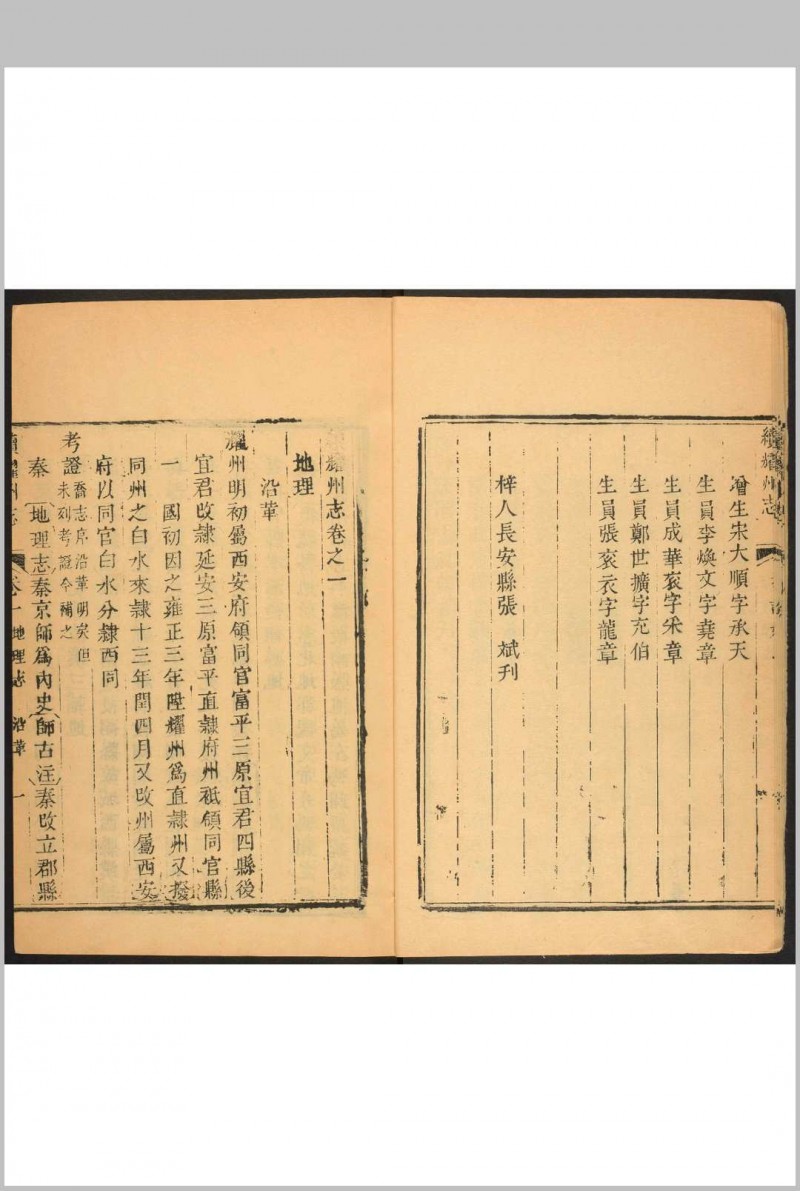 續耀州志
增生宋大順字承天
生員李煥文字堯章
生員成華袞字釆章
生員鄭世擴字充伯
生員張袞衣字龍章
梓人長安縣張　斌刊
耀州志卷之一
地理
沿革
耀州明初屬西安府領同官富平三原宜君四縣後
宜君改隸延安三原富平直隸府州祗領同官縣
一　國初因之雍正三年陞耀州爲直隸州又撥
同州之白水來隸十三年閏四月又改州屬西安
府以同官白水分隸西同
考證喬志序沿革明矣但
未列考證今補之
秦　地理志秦京師爲內史師古注秦改立郡縣
續耀州志　卷一　地理志　沿革　一